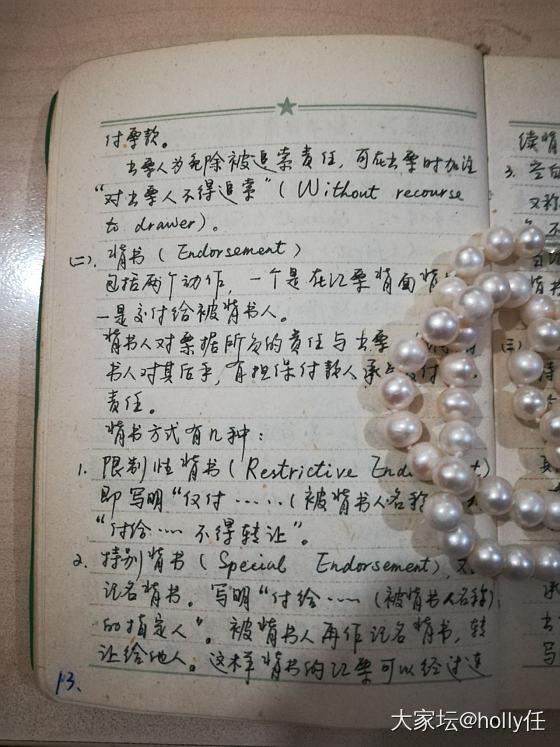 付票款。
出票人为免除被追索责任，可在出票时加注
“对出票人不得追索”（Without recourse
to drawer)。
(二)、背书（Endorsement）
包括两个动作，一个是在汇票背面背
一是交付给被背书人。
背书人对票据所负的责任与出票
书人对其后手，有担保付款人承 付
责任。
背书方式有几种：
1. 限制性背书（Restrictive End ）
即写明“仅付……（被背书人名称
“付给…… 不得转让”。
2. 特别背书（Special Endorsement），又
记名背书。写明“付给……（被背书人名称）
的指定人”。被背书人再作记名背书，转
让给他人。这样背书的汇票可以经过连
13.
续背
3. 空白
又称
大家坛@holly任